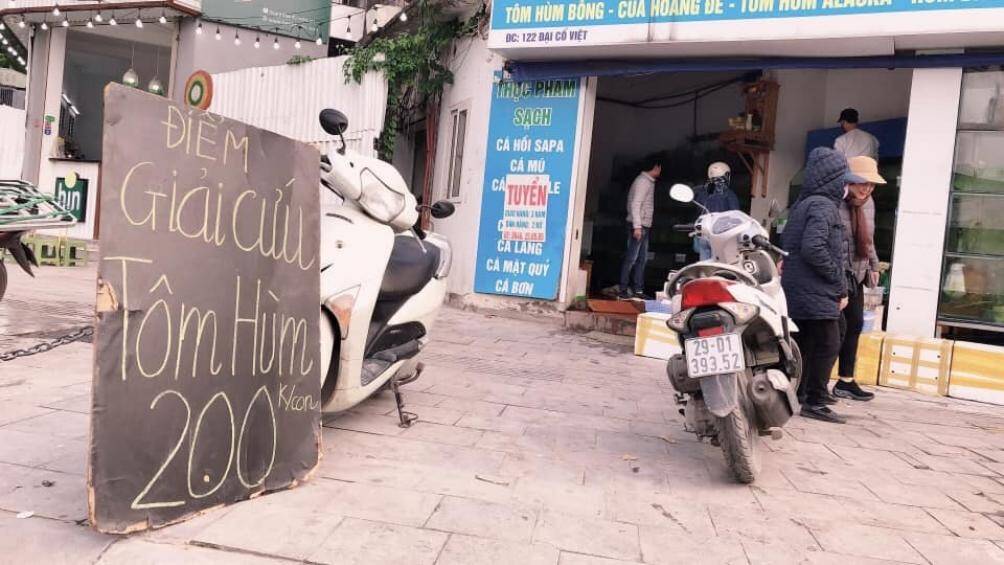 ĐIỂM
Giải cứu
Tôm Hùm
200
K/con
TÔM HÙM BÔNG - CUA HOÀNG ĐẾ - TÔM HÙM ALASKA -
ĐC: 122 ĐẠI CỒ VIỆT
THỰC PHẨM
SẠCH
CÁ HỒI SAPA
CÁ MÚ
CÁ
LE
TUYỂN
GIAO HÀNG: 2 NAM
BÁN HÀNG: 2 NỮ
CÁ LĂNG
CÁ MẶT QUỶ
CÁ BƠN
bún
29-D1
393.52